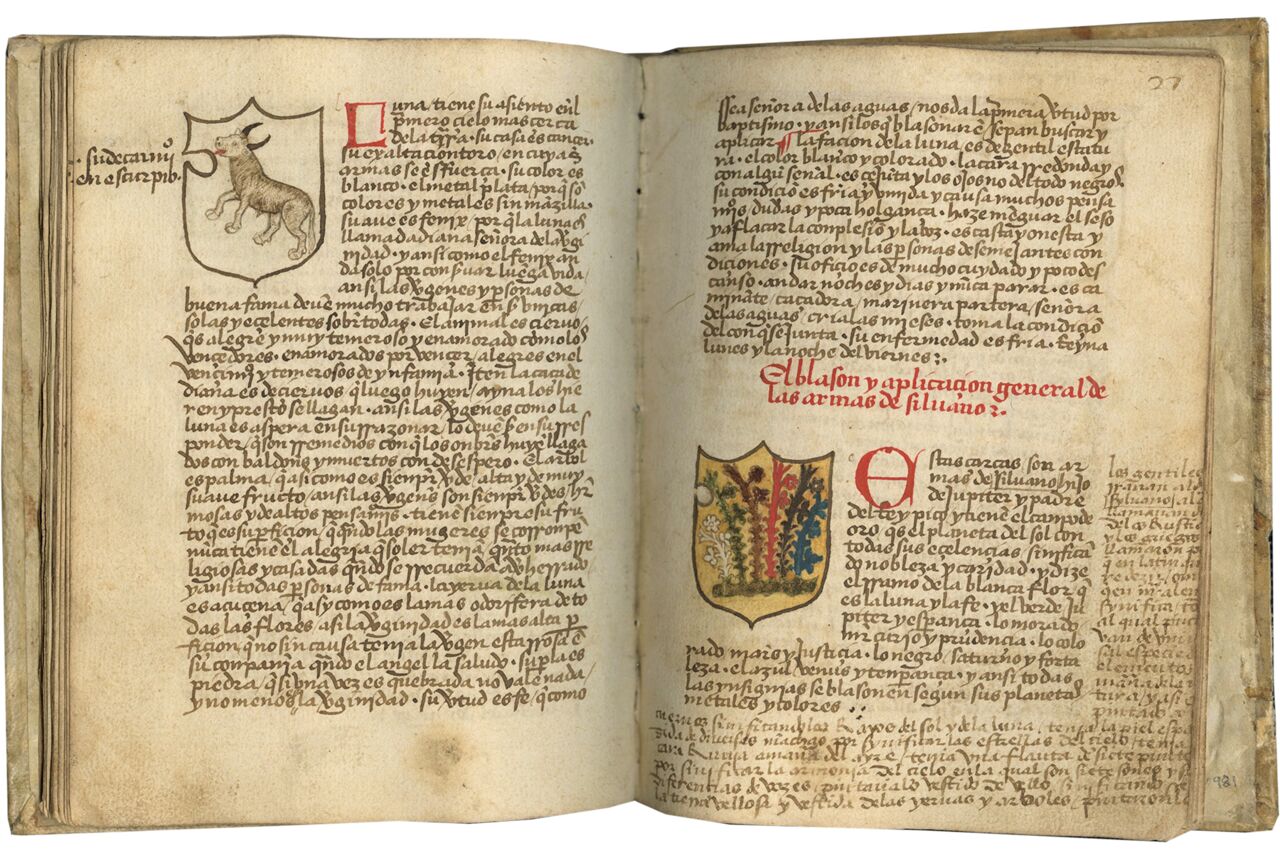 su decaimiº
en escurpio.
Luna, tiene su asiento en l
pmero cielo mas cerca
de la trrª. su casa es cancer
su exaltacion toro, en cuyas
armas se esfuerca. su color es
blanco. el metal plata, porq̃ sõ
colores y metales sin manzilla.
su ave es fenix, por q̃ la luna es
llamada diana señora de la vgi
nidad. y ansi como el fenix an
da solo por conšuar luenga vida,
ansi las vgenes y psonas de
buena fama devẽ mucho trabajar
solas y ecelentes sobre todas. El animal es ciervo
q̃s alegre y muy temeroso y enamorado como los
vencedores. enamorados por vencer, alegres en el
vencimiº y temerosos de ynfamia. Iten la caca de
diana es de ciervos q̃ luego huyen, ayna los hie
ren y presto se llagan. ansi las vgenes como la
luna es aspera en su rrazonar, lo devẽ en su rres
ponder, q̃ son rremedios con q̃ los onbrs huyẽ llaga
dos con baldons y muertos con desespero. El arbol
es palma, q̃ asi como es sienpr vde, alta y de muy
suave fructo, ansi las vgens son sienpr vdes, hr
mosas y de altos pensamiºs. tiene sienpre su fru
to q̃ es su pficion, q̃ndo las mugeres se corronpẽ
nũca tiene el alegria q̃ soler tenia, q̃nto mas rre
ligiosas y casadas q̃ndo se rrecuerda aver herrado
y ansi todas psonas de fama. la yerva de la luna
es acucena, q̃ asy como es la mas odorifera de to
das las flores, asi la vginidad es la mas alta p
ficion, q̃ no sin causa tenia la vgen esta rrosa ẽ
su conpania q̃ndo el angel la saludo. su pla es
piedra, q̃ si vna vez es quebrada no vale nada,
y no menos la vginidad. su vtud es fe, q̃ como
27
ssea señora de las aguas, nos da la pmera vtud por
baptismo. y ansi los q̃ blasonarẽ, sepan buscar y
aplicar. ¶ la facion de la luna, es de gentil estatu
ra. el color blanco y colorado. la cara rredonda y
con algũ señal. es cejuta y los ojos no del todo negros.
su condiciõ es fria y vmida y causa muchos pensa
miºs, dudas y poca holganca. haze mẽguar el seso
y aflacar la complesiõ y la boz. es casta y onesta y
ama la rreligion y las psonas de semejantes con
diciones. su oficio es de mucho cuydado y poco des
canso. andar noches y dias y nũca parar. es ca
minãte, cacadora, marinera partera, señora
de las aguas, cria las mieses. toma la condiciõ
del con q̃ se junta. su enfermedad es fria. Reyna
lunes y la noche del viernes:.
El blason y aplicacion general de
las armas de silvano.
Estas carcas, son ar
mas de silvano hijo
de jupiter y padre
del rey pico y tiene el campo de
oro, q̃s el planeta del sol con
todas sus ecelencias, sinifica
do nobleza y caridad. y dize
el rramo de la blanca flor q̃
es la luna y la fe. y el verde ju
piter y espanca. lo morado
mrcurio y prudencia. lo colo
rado mars y justicia. lo negro, saturno y forta
leza. el azul venus y tempanca. y ansi todas
las ynsignias se blasonen segun sus planetas
metales y colores
los gentiles
silvano
en latin
cuernos sinificando los Rayos del sol y de la luna, tenia la piel
de diversas manchas por synificar las estrellas del cielo, tenia
la cara Ruvia a manera del ayre, tenia vna flauta de siete
por sinificar la armonia del cielo en la qual son siete sones y
diferencias de vozes, pintavalo vestido de vello, sinificando
la tierra vellosa y vestida de las yervas y arvoles,
981